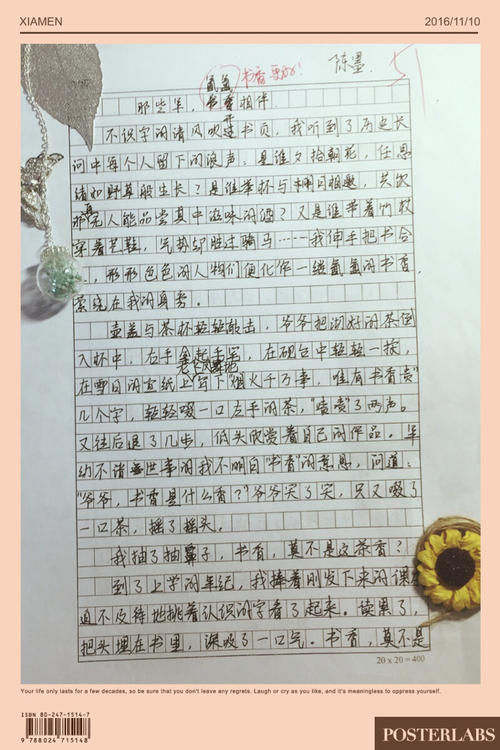 XIAMEN
2016/11/10
书香要的!
陈墨
51
氤氲
那些年,书香相伴
不识字的清风吹开书页,我听到了历史长
河中每个人留下的浪声。是谁夕拾朝花,任思
绪如野草般生长?是谁举杯与明月相邀,共饮
那再无人能品尝其中滋味的酒?又是谁带着竹杖
穿着芒鞋,气势却胜过骑马……我伸手把书合
上,形形色色的人物们便化作一缕氤氲的书香,
萦绕在我的身旁。
壶盖与茶杯轻轻敲击,爷爷把沏好的茶倒
入杯中,右手拿起毛笔,在砚台中轻轻一抹,
龙飞凤舞地
在雪白的宣纸上写下"烟火千万事,唯有书香贵"
几个字,轻轻啜一口左手的茶,"啧啧"了两声。
又往后退了几步,低头欣赏着自己的作品。年
幼不谙世事的我不明白"书香"的意思,问道:
"爷爷,书香是什么香?"爷爷笑了笑,只又啜了
一口茶,摇了摇头。
我抽了抽鼻子,书香,莫不是这茶香?
到了上学的年纪,我捧着刚发下来的课本
迫不及待地挑着认识的字看了起来。读累了,
把头埋在书里,深吸了一口气。书香,莫不是
20 x 20 = 400
Your life only lasts for a few decades, so be sure that you don't leave any regrets. Laugh or cry as you like, and it's meaningless to oppress yourself.
ISBN 80-247-1514-7
9 788024 715148
POSTERLABS